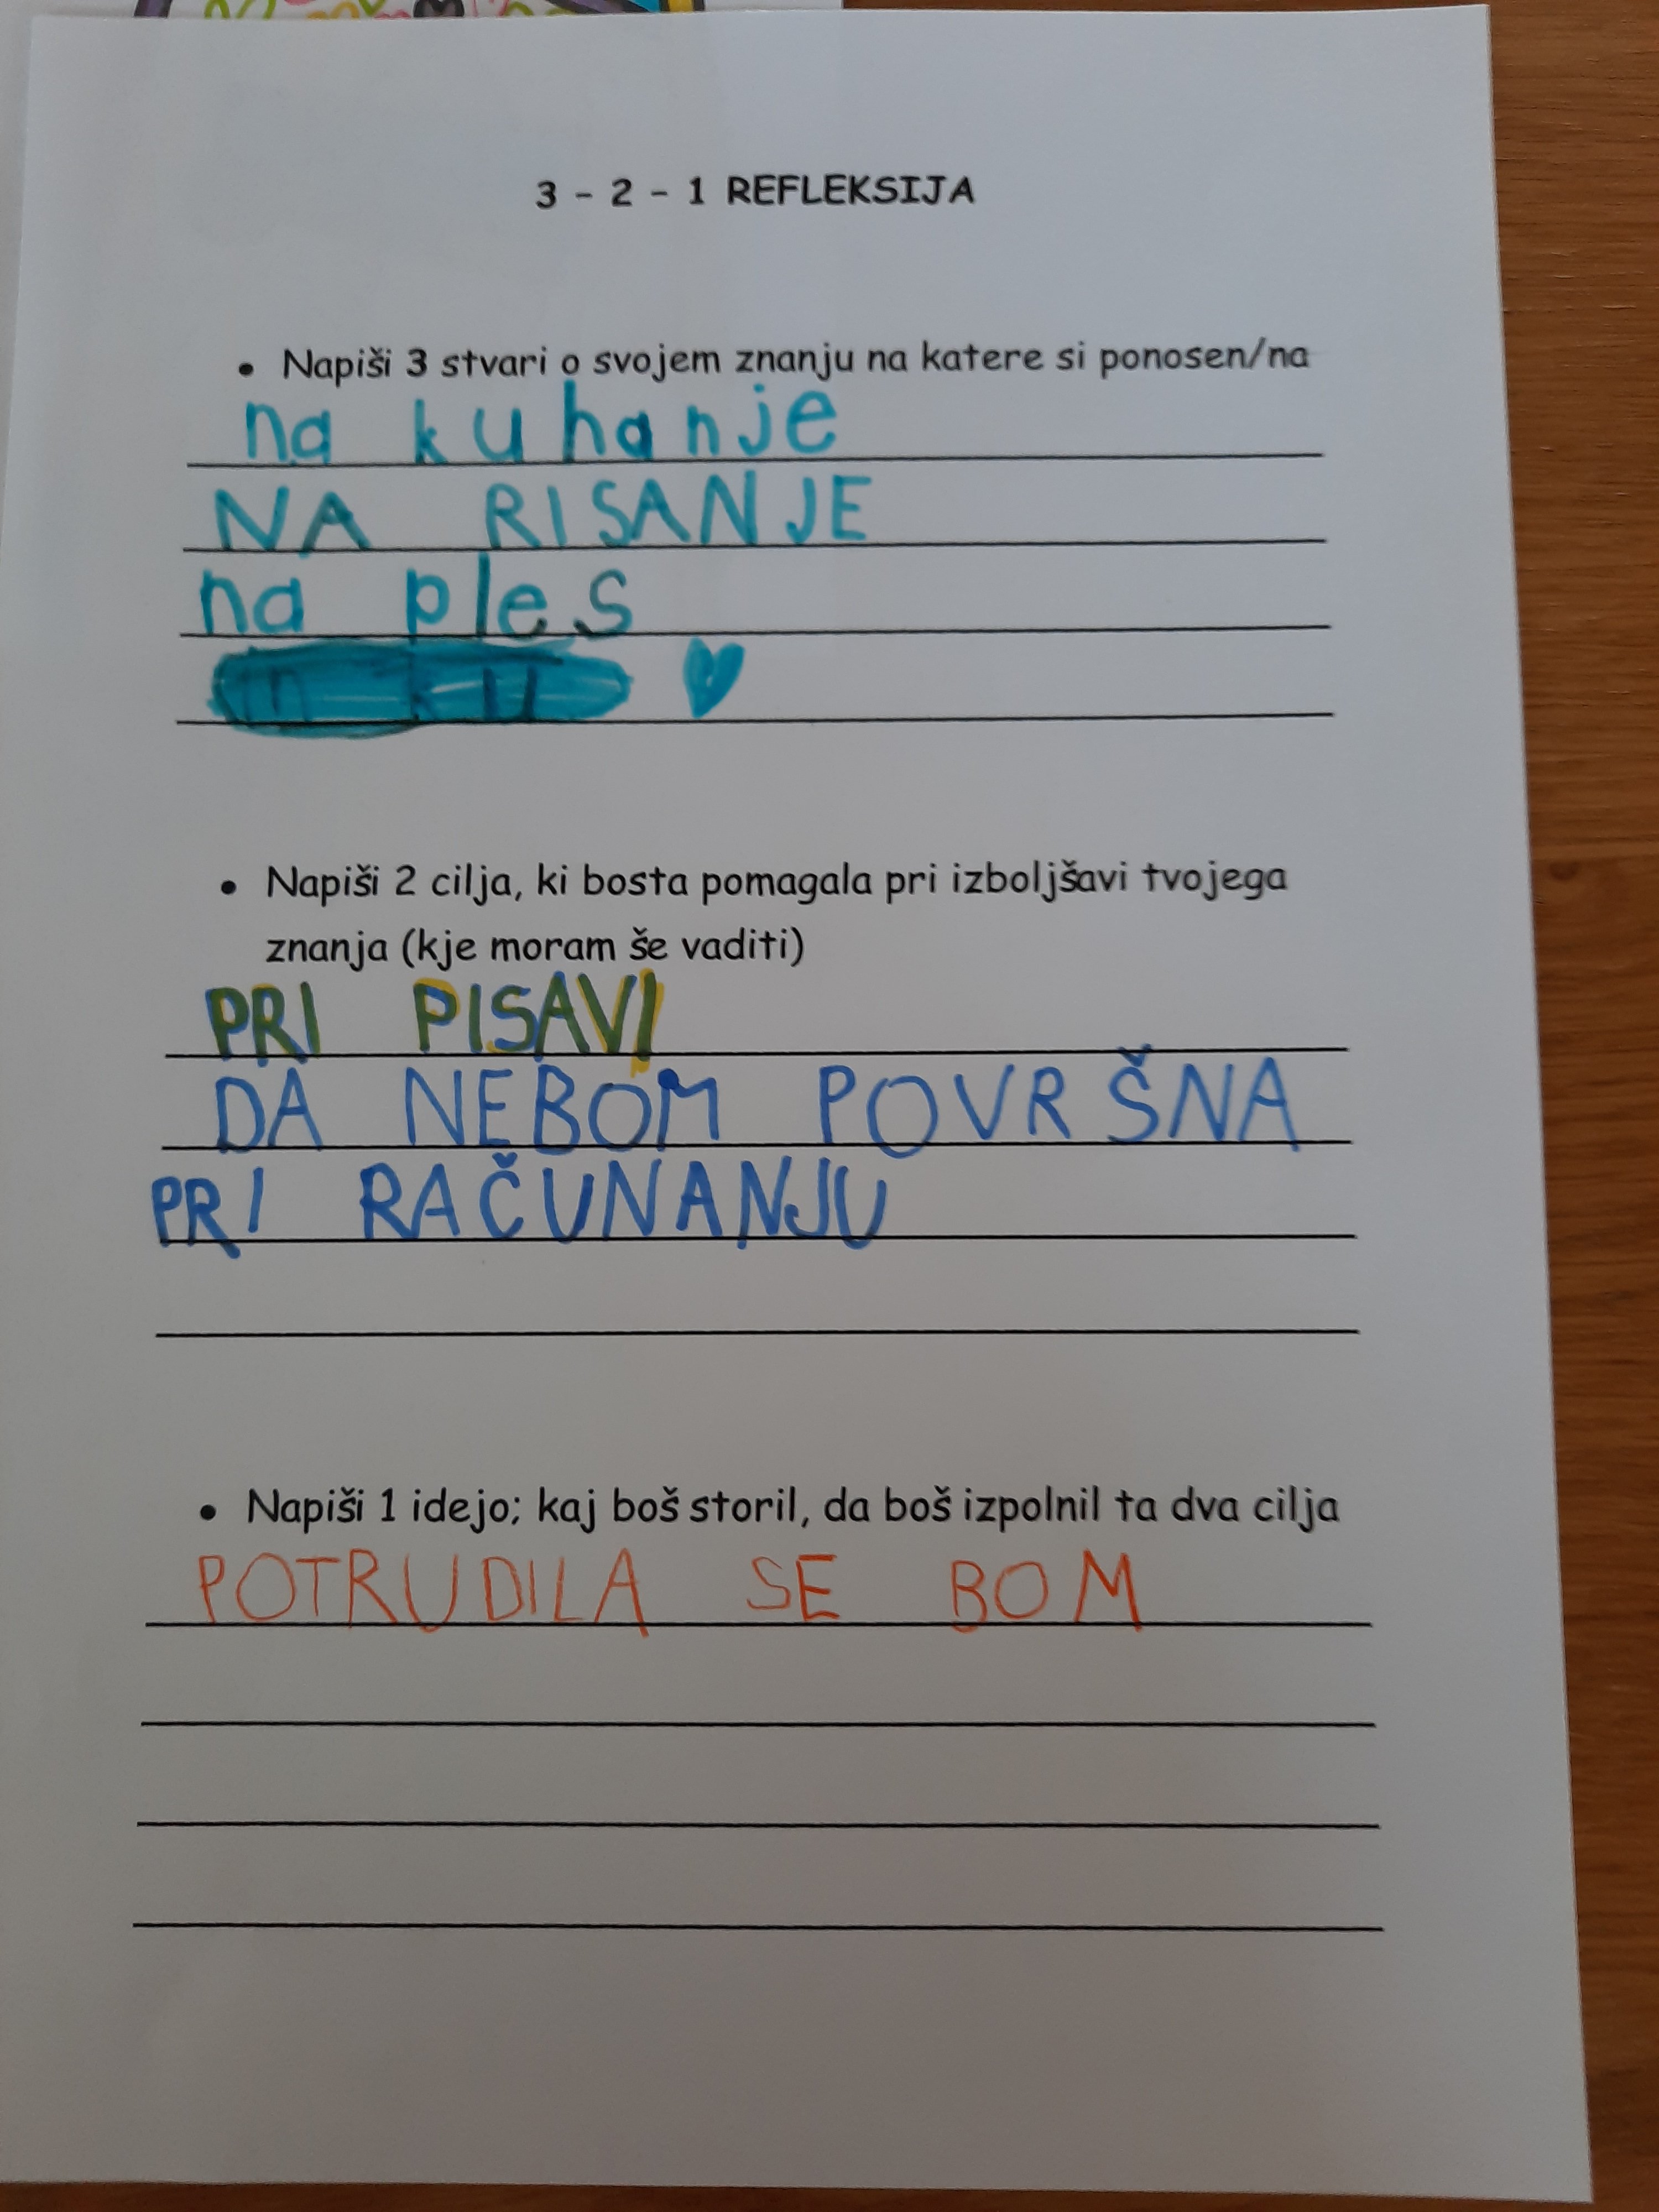 3 - 2 - 1 REFLEKSIJA
• Napiši 3 stvari o svojem znanju na katere si ponosen/na
na kuhanje
NA RISANJE
na ples
• Napiši 2 cilja, ki bosta pomagala pri izboljšavi tvojega
znanja (kje moram še vaditi)
PRI PISAVI
DA NEBOM POVRŠNA
PRI RAČUNANJU
• Napiši 1 idejo; kaj boš storil, da boš izpolnil ta dva cilja
POTRUDILA SE BOM